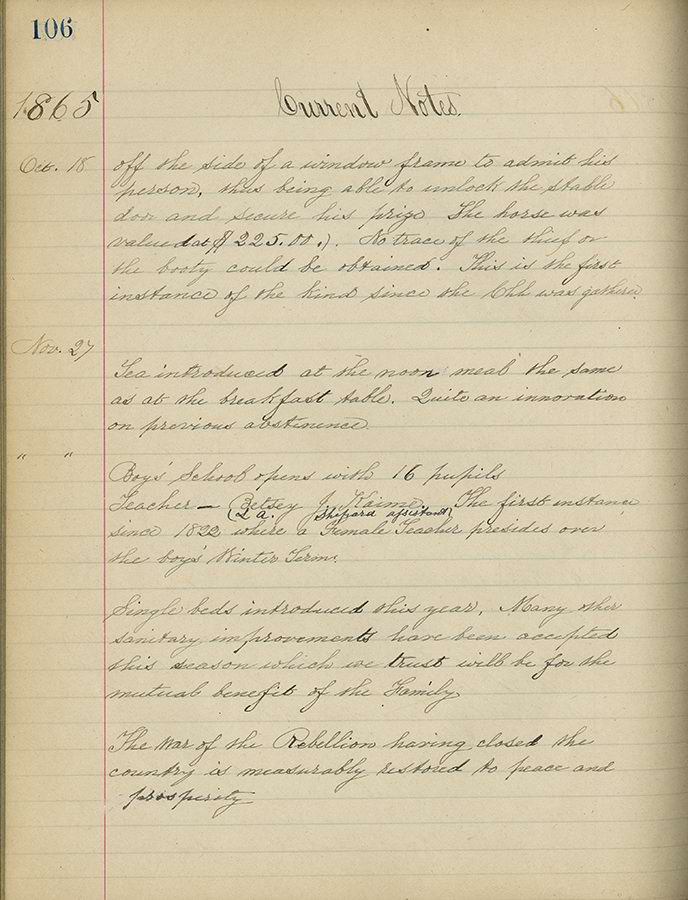 106
1865 Current Notes.
Oct. 18 off the side of a window frame to admit his
person, thus being able to unlock the stable
door and secure his prize The horse was
valued at $225.00.). No trace of the thief or
the booty could be obtained. This is the first
instance of the kind since the Chh was gathered
Nov. 27
Tea introduced at the noon meal the same
as at the breakfast table. Quite an innovation
on previous abstinence.
" "
Boy's School opens with 16 pupils
Teacher — Betsey J. Kaime. The first instance
(L A. Shepard assistant)
since 1822 where a Female Teacher presides over
the boy's Winter Term.
Single beds introduced this year. Many other
sanitary improvements have been accepted
this season which we trust will be for the
mutual benefit of the Family.
The War of the Rebellion having closed the
country is measurably restored to peace and
prosperity